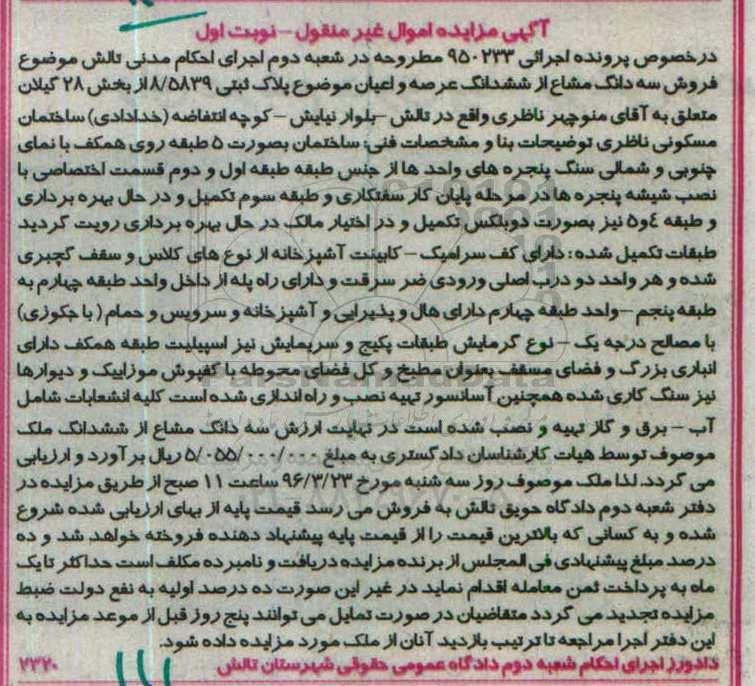 آگهی مزایده اموال غیر منقول – نوبت اول
درخصوص پرونده اجرائی ۹۵۰۲۳۳ مطروحه در شعبه دوم اجرای احکام مدنی تالش موضوع
فروش سه دانگ مشاع از ششدانگ عرصه و اعیان موضوع پلاک ثبتی ۸/۵۸۳۹ از بخش ۲۸ گیلان
متعلق به آقای منوچهر ناظری واقع در تالش – بلوار نیایش – کوچه انتفاضه (خدادادی) ساختمان
مسکونی ناظری توضیحات بنا و مشخصات فنی: ساختمان بصورت ۵ طبقه روی همکف با نمای
جنوبی و شمالی سنگ پنجره های واحد ها از جنس طبقه طبقه اول و دوم قسمت اختصاصی با
نصب شیشه پنجره ها در مرحله پایان کار سفتکاری و طبقه سوم تکمیل و در حال بهره برداری
و طبقه ٤و۵ نیز بصورت دوبلکس تکمیل و در اختیار مالک در حال بهره برداری رویت گردید
طبقات تکمیل شده : دارای کف سرامیک – کابینت آشپزخانه از نوع های کلاس و سقف گچبری
شده و هر واحد دو درب اصلی ورودی ضر سرقت و دارای راه پله از داخل واحد طبقه چهارم به
طبقه پنجم – واحد طبقه چهارم دارای هال و پذیرایی و آشپزخانه و سرویس و حمام ( با جکوزی)
با مصالح درجه یک – نوع گرمایش طبقات پکیج و سرپمایش نیز اسپیلیت طبقه همکف دارای
انباری بزرگ و فضای مسقف بعنوان مطبخ و کل فضای محوطه با کفپوش موزاییک و دیوارها
نیز سنگ کاری شده همچنین آسانسور تهیه نصب و راه اندازی شده است کلیه انشعابات شامل
آب – برق و گاز تهیه و نصب شده است در نهایت ارزش سه دانگ مشاع از ششدانگ ملک
موصوف توسط هیات کارشناسان دادگستری به مبلغ ۵/۰۵۵/۰۰۰/۰۰۰ ریال برآورد و ارزیابی
می گردد. لذا ملک موصوف روز سه شنبه مورخ ۹۶/۳/۲۳ ساعت ۱۱ صبح از طریق مزایده در
دفتر شعبه دوم دادگاه حویق تالش به فروش می رسد قیمت پایه از بهای ارزیابی شده شروع
شده و به کسانی که بالاترین قیمت را از قیمت پایه پیشنهاد دهنده فروخته خواهد شد و ده
درصد مبلغ پیشنهادی فی المجلس از برنده مزایده دریافت و نامبرده مکلف است حداکثر تا یک
ماه به پرداخت ثمن معامله اقدام نماید در غیر این صورت ده درصد اولیه به نفع دولت ضبط
مزایده تجدید می گردد متقاضیان در صورت تمایل می توانند پنج روز قبل از موعد مزایده به
این دفتر اجرا مراجعه تا ترتیب بازدید آنان از ملک مورد مزایده داده شود.
دادورز اجرای احکام شعبه دوم دادگاه عمومی حقوقی شهرستان تالش ۲۳۲۰